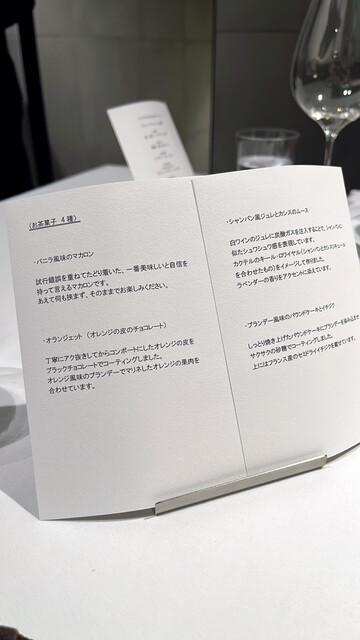 (お茶菓子 4 種)
・バニラ風味のマカロン
試行錯誤を重ねてたどり着いた、一番美味しいと自信を
持って言えるマカロンです。
あえて何も挟まず、そのままでお楽しみください。
・オランジェット (オレンジの皮のチョコレート)
丁寧にアク抜きしてからコンポートにしたオレンジの皮を
ブラックチョコレートでコーティングしました。
オレンジ風味のブランデーでマリネしたオレンジの果肉を
合わせています。
・シャンパン風ジュレとカシスのムース
白ワインのジュレに炭酸ガスを注入することで、シャンパンに
似たシュワシュワ感を表現しています。
カクテルのキール・ロワイヤル(シャンパンとカシスリキュール
を合わせたもの)をイメージして作りました。
ラベンダーの香りをアクセントに添えています。
・ブランデー風味のパウンドケーキとイチジク
しっとり焼き上げたパウンドケーキにブランデーを染み込ませ
サクサクの砂糖でコーティングしました。
上にはフランス産のセミドライイチジクを載せています。